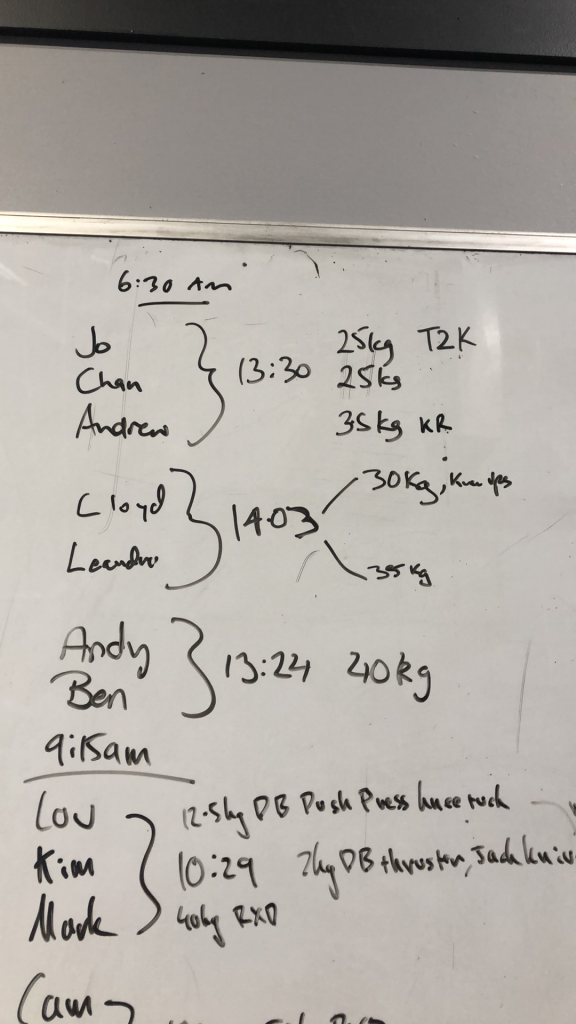 6:30 Am
Jo 25kg T2K
Chan 13:30 25kg
Andrew 35kg KR
Cloyd 30Kg, Knee ups
Leandro 14:03 35kg
Andy 13:24 40kg
Ben
9:15am
Lou 12.5kg DB Push Press knee tuck
Kim 10:29 7kg DB thruster,
Mark 40kg RXD
Cam